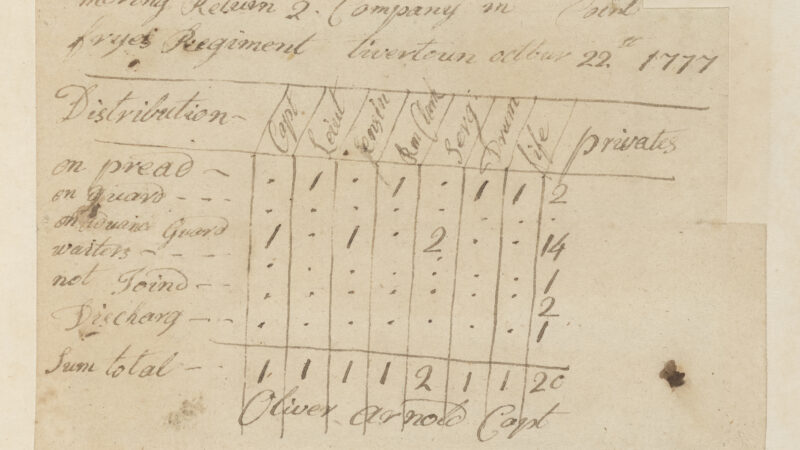 moring Return 2. Company in
fryes Regiment tivertoun octbur 22 1777
Distribution – Capt Leiut Ensin Serg Drum fife privates
on pread – . 1 . 1 . 1 1 2
on guard - - - . . . . . . . .
on Guard 1 . 1 . 2 . . 14
waiters - - - . . . . . . . 1
not Joind - - . . . . . . . 2
Discharg - - - . . . . . . . 1
Sum total - - 1 1 1 1 2 1 1 20
Oliver Arnold Capt